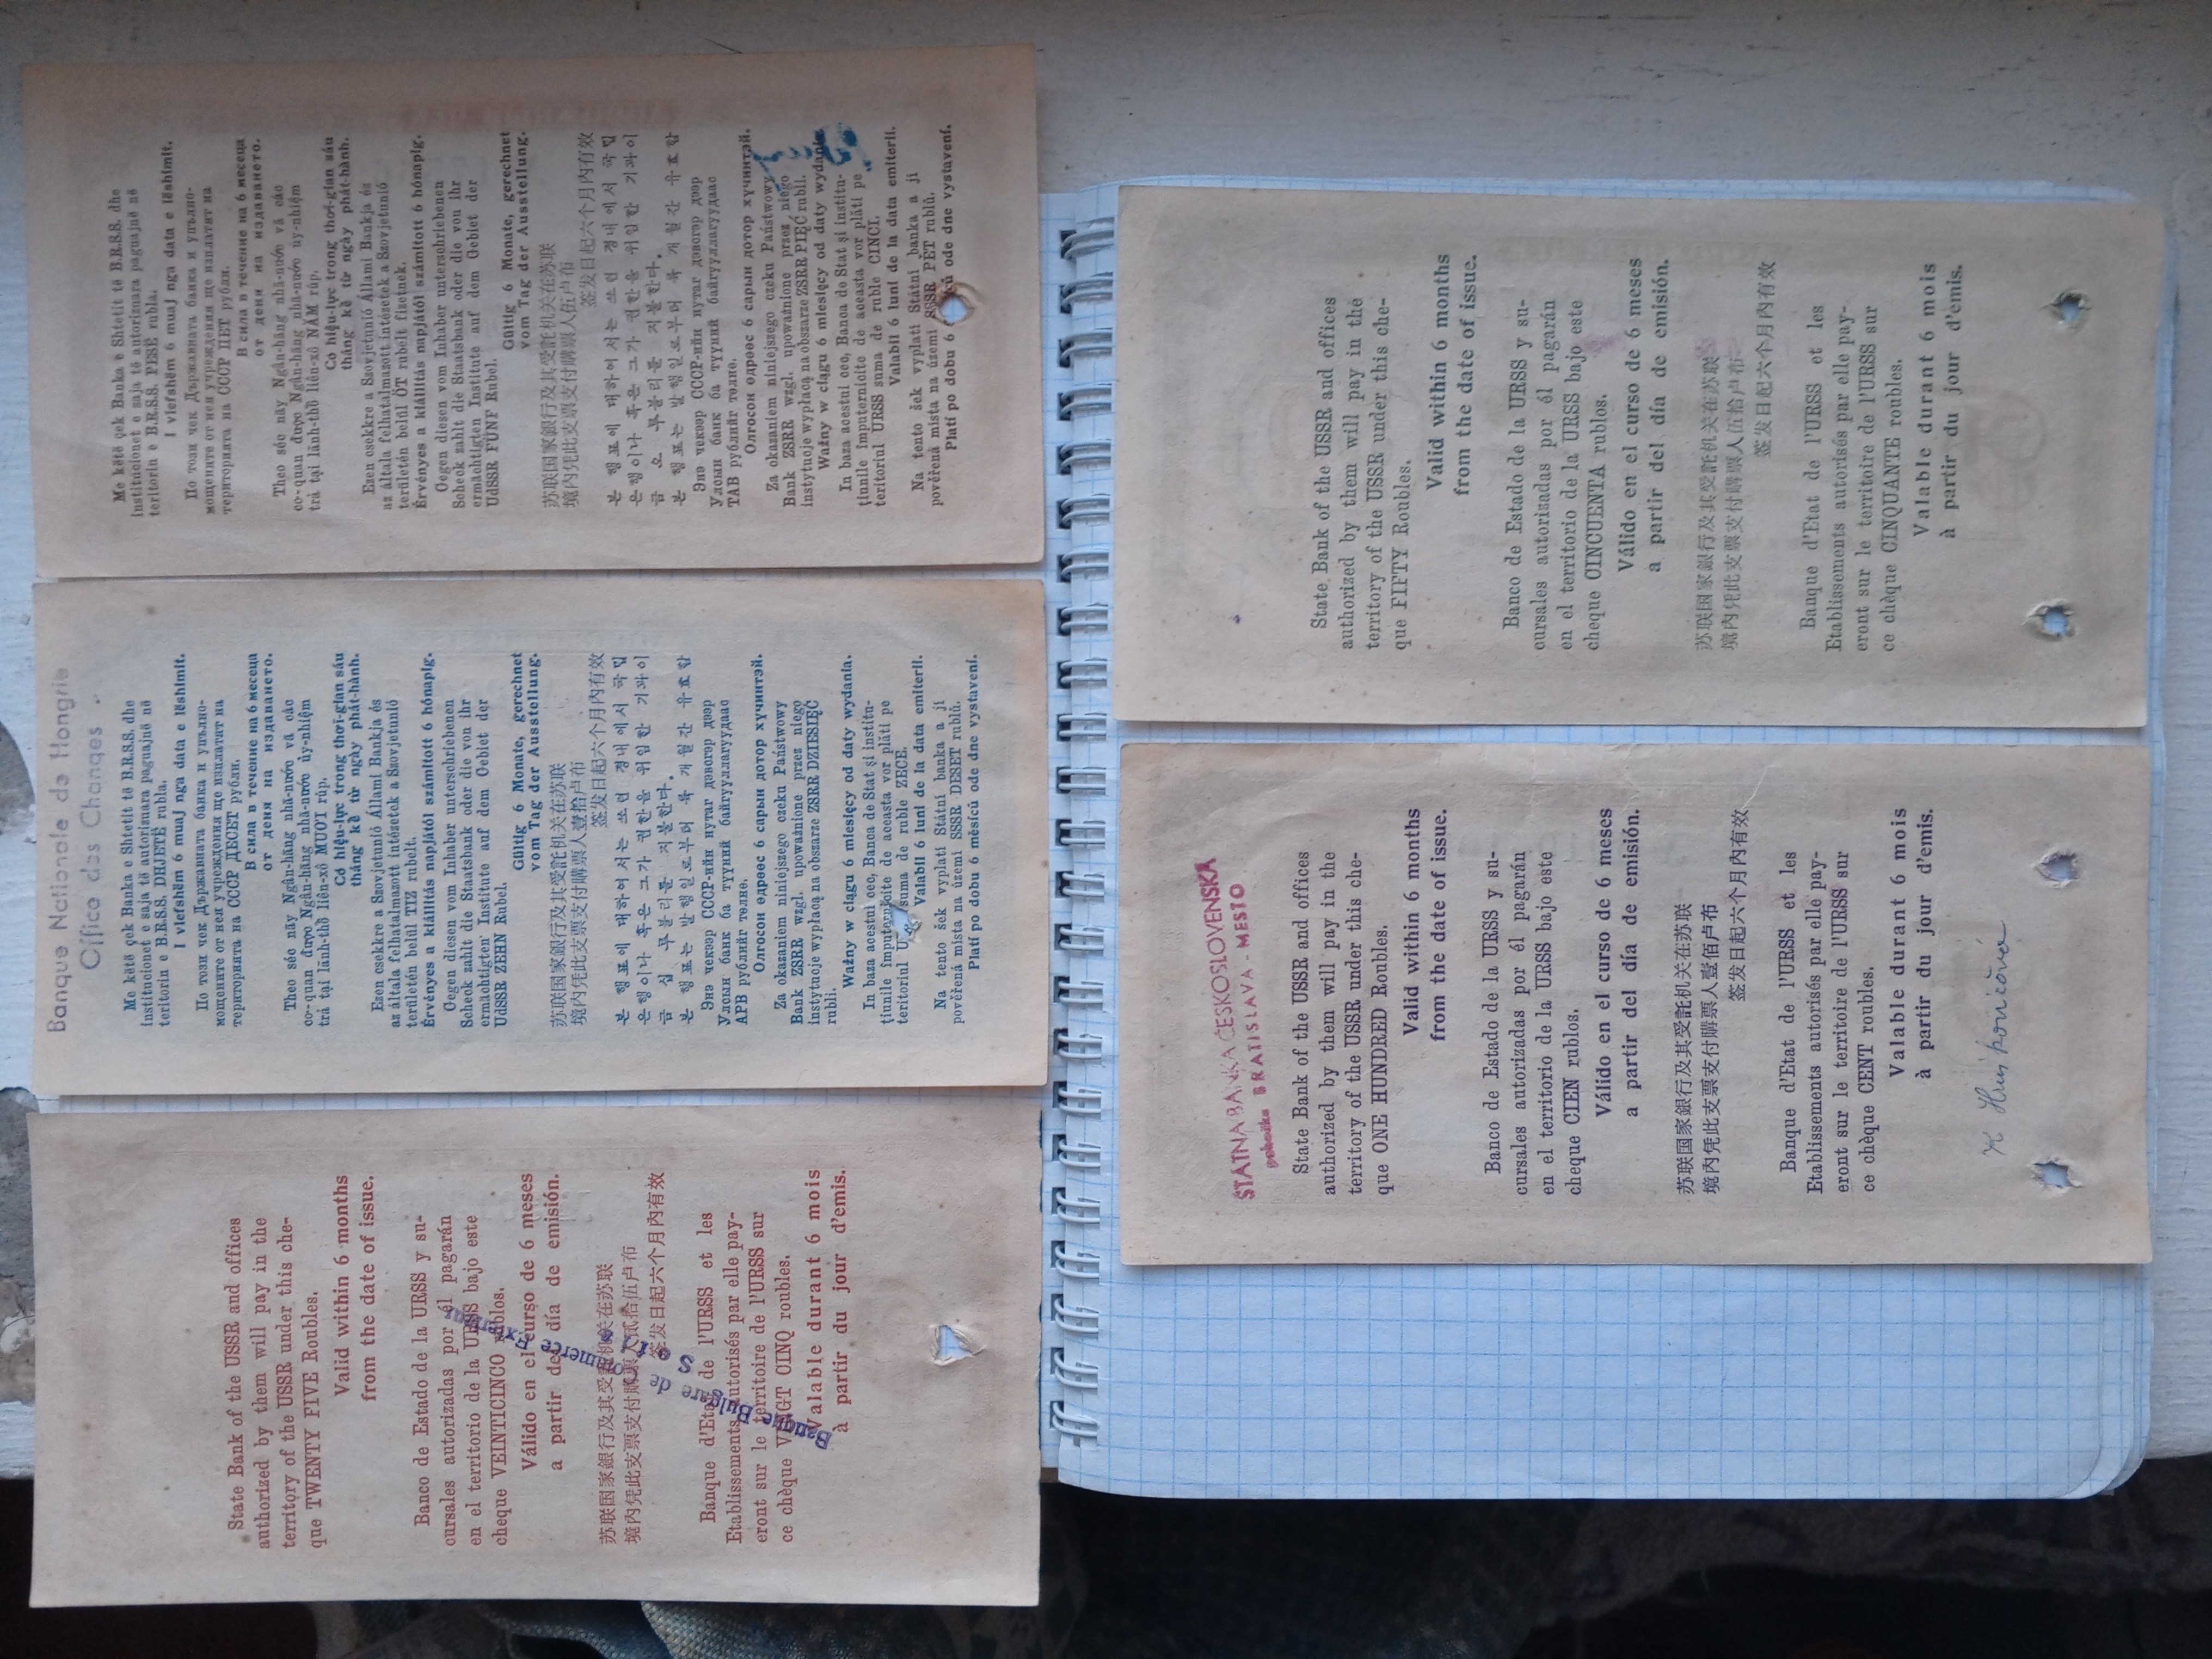 Me këtë çek Banka e Shtetit të B.R.S.S. dhe
institucionet e saja të autorizuara paguajnë në
teritorin e B.R.S.S. PESË rubla.
I vlefshëm 6 muaj nga data e lëshimit.
По този чек Държавната банка и упълно-
мощените от нея учреждения ще изплатят на
територията на СССР ПЕТ рубли.
В сила в течение на 6 месеца
от деня на издаването.
Theo séc này Ngân-hàng nhà-nước và các
cơ-quan được Ngân-hàng nhà-nước ủy-nhiệm
trả tại lãnh-thổ liên-xô NĂM rúp.
Có hiệu-lực trong thơi-gian sáu
tháng kể từ ngày phát-hành.
Ezen csekkre a Szovjetunió Állami Bankja és
az általa felhatalmazott intézetek a Szovjetunió
területén belül ÖT rubelt fizetnek.
Érvényes a kiállítás napjától számított 6 hónapig.
Gegen diesen vom Inhaber unterschriebenen
Scheck zahlt die Staatsbank oder die von ihr
ermächtigten Institute auf dem Gebiet der
UdSSR FÜNF Rubel.
Gültig 6 Monate, gerechnet
vom Tag der Ausstellung.
苏联国家銀行及其受託机关在苏联
境内凭此支票支付購票人伍卢布
签发日起六个月内有效
본 행표에 대하여서는 쏘련 경내에서 국립
은행이나 혹은 그가 권한을 위임한 기과이
금 오 루블리를 지불한다.
본 행표는 발행일로부터 륙 개월간 유효함
Энэ чекээр СССР-ийн нутаг дэвсгэр дээр
Улсын банк ба түүний байгууллагуудаас
ТАВ рублийг төлнө.
Олгосон өдрөөс 6 сарын дотор хүчинтэй.
Za okazaniem niniejszego czeku Państwowy
Bank ZSRR wzgl. upoważnione przez niego
instytucje wypłacą na obszarze ZSRR PIĘĆ rubli.
Ważny w ciągu 6 miesięcy od daty wydania.
In baza acestui cec, Banca de Stat și institu-
țiunile împuternicite de aceasta vor plăti pe
teritoriul URSS suma de ruble CINCI.
Valabil 6 luni de la data emiterii.
Na tento šek vyplatí Státní banka a jí
pověřená místa na území SSSR PĚT rublů.
Platí po dobu 6 ců ode dne vystavení.
Banque Nationale de Hongrie
Office des Changes
Me këtë çek Banka e Shtetit të B.R.S.S. dhe
institucionet e saja të autorizuara paguajnë në
teritorin e B.R.S.S. DHJETË rubla.
I vlefshëm 6 muaj nga data e lëshimit.
По този чек Държавната банка и упълно-
мощените от нея учреждения ще изплатят на
територията на СССР ДЕСЕТ рубли.
В сила в течение на 6 месеца
от деня на издаването.
Theo séc này Ngân-hàng nhà-nước và các
cơ-quan được Ngân-hàng nhà-nước ủy-nhiệm
trả tại lãnh-thổ liên-xô MUOI rúp.
Có hiệu-lực trong thơi-gian sáu
tháng kể từ ngày phát-hành.
Ezen csekkre a Szovjetunió Állami Bankja és
az általa felhatalmazott intézetek a Szovjetunió
területén belül TIZ rubelt.
Érvényes a kiállítás napjától számított 6 hónapig.
Gegen diesen vom Inhaber unterschriebenen
Scheck zahlt die Staatsbank oder die von ihr
ermächtigten Institute auf dem Gebiet der
UdSSR ZEHN Rubel.
Gültig 6 Monate, gerechnet
vom Tag der Ausstellung.
苏联国家銀行及其受託机关在苏联
境内凭此支票支付購票人壹拾卢布
签发日起六个月内有效
본 행표에 대하여서는 쏘련 경내에서 국립
은행이나 혹은 그가 권한을 위임한 기과이
금 십 루블리를 지불한다.
본 행표는 발행일로부터 륙 개월간 유효함
Энэ чекээр СССР-ийн нутаг дэвсгэр дээр
Улсын банк ба түүний байгууллагуудаас
АРВ рублийг төлнө.
Олгосон өдрөөс 6 сарын дотор хүчинтэй.
Za okazaniem niniejszego czeku Państwowy
Bank ZSRR wzgl. upoważnione przez niego
instytucje wypłacą na obszarze ZSRR DZIESIĘĆ
rubli.
Ważny w ciągu 6 miesięcy od daty wydania.
In baza acestui cec, Banca de Stat și institu-
țiunile împuternicite de aceasta vor plăti pe
teritoriul suma de ruble ZECE.
Valabil 6 luni de la data emiterii.
Na tento šek vyplatí Státní banka a jí
pověřená místa na území SSSR DESET rublů.
Platí po dobu 6 měsíců ode dne vystavení.
State Bank of the USSR and offices
authorized by them will pay in the
territory of the USSR under this che-
que TWENTY FIVE Roubles.
Valid within 6 months
from the date of issue.
Banco de Estado de la URSS y su-
cursales autorizadas por él pagarán
en el territorio de la URSS bajo este
cheque VEINTICINCO rublos.
Válido en el curso de 6 meses
a partir del día de emisión.
苏联国家銀行及其受託机关在苏联
境内凭此支票支付購票人贰拾伍卢布
签发日起六个月内有效
Banque d'Etat de l'URSS et les
Etablissements autorisés par elle pay-
eront sur le territoire de l'URSS sur
ce chèque VINGT CINQ roubles.
Valable durant 6 mois
à partir du jour d'emis.
Banque Bulgare de Commerce Extérieur
State Bank of the USSR and offices
authorized by them will pay in the
territory of the USSR under this che-
que FIFTY Roubles.
Valid within 6 months
from the date of issue.
Banco de Estado de la URSS y su-
cursales autorizadas por él pagarán
en el territorio de la URSS bajo este
cheque CINCUENTA rublos.
Válido en el curso de 6 meses
a partir del día de emisión.
苏联国家銀行及其受託机关在苏联
境内凭此支票支付購票人伍拾卢布
签发日起六个月内有效
Banque d'Etat de l'URSS et les
Etablissements autorisés par elle pay-
eront sur le territoire de l'URSS sur
ce chèque CINQUANTE roubles.
Valable durant 6 mois
à partir du jour d'emis.
ŠTÁTNA BANKA ČESKOSLOVENSKÁ
pobočka BRATISLAVA - MESTO
State Bank of the USSR and offices
authorized by them will pay in the
territory of the USSR under this che-
que ONE HUNDRED Roubles.
Valid within 6 months
from the date of issue.
Banco de Estado de la URSS y su-
cursales autorizadas por él pagarán
en el territorio de la URSS bajo este
cheque CIEN rublos.
Válido en el curso de 6 meses
a partir del día de emisión.
苏联国家銀行及其受託机关在苏联
境内凭此支票支付購票人壹佰卢布
签发日起六个月内有效
Banque d'Etat de l'URSS et les
Etablissements autorisés par elle pay-
eront sur le territoire de l'URSS sur
ce chèque CENT roubles.
Valable durant 6 mois
à partir du jour d'emis.